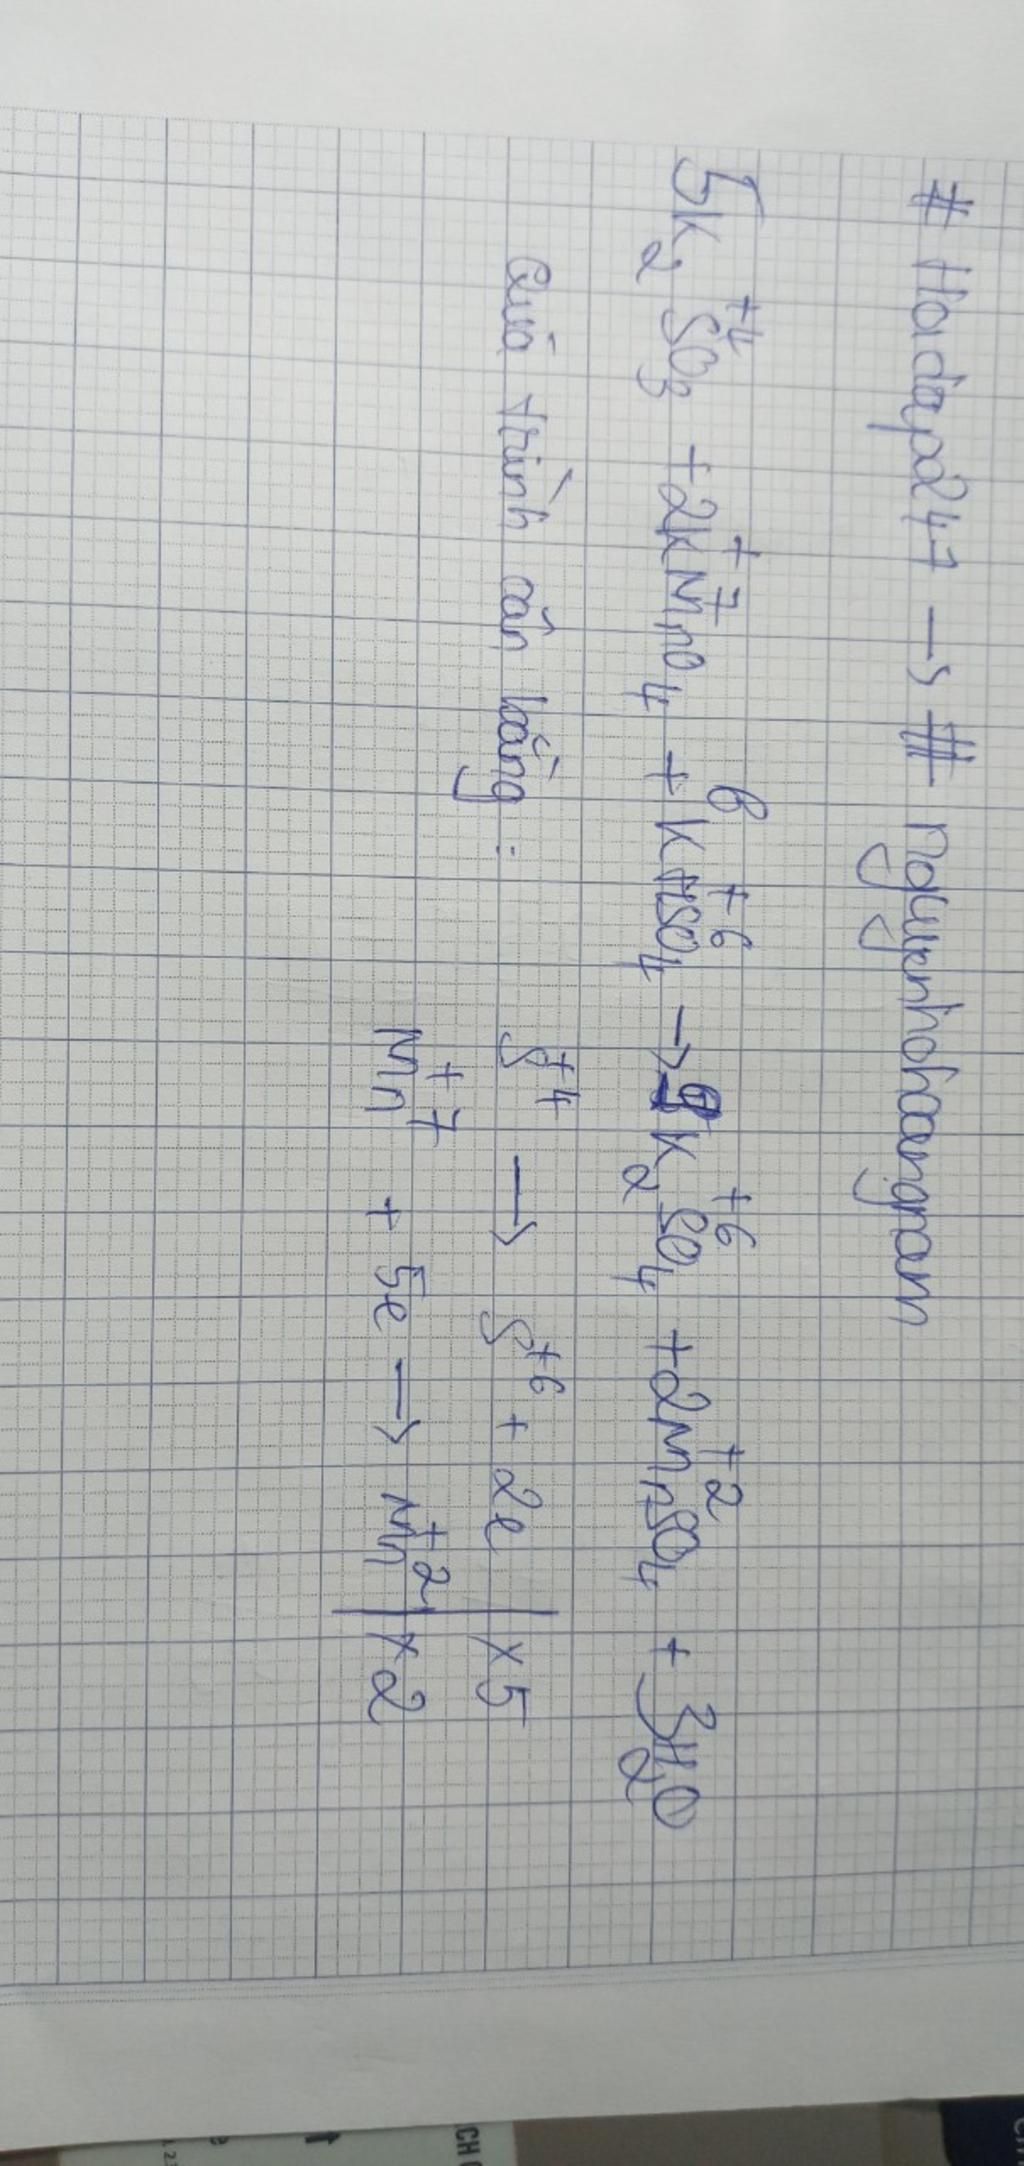 # Hoidap247 → # nguyenhohoangnam
5K₂S⁺⁴O₃ + 2KMn⁺⁷O₄ + 6KHS⁺⁶O₄ → 9K₂S⁺⁶O₄ + 2Mn⁺²SO₄ + 3H₂O
Quá trình cân bằng : S⁺⁴ → S⁺⁶ + 2e | x 5
Mn⁺⁷ + 5e → Mn⁺² | x 2